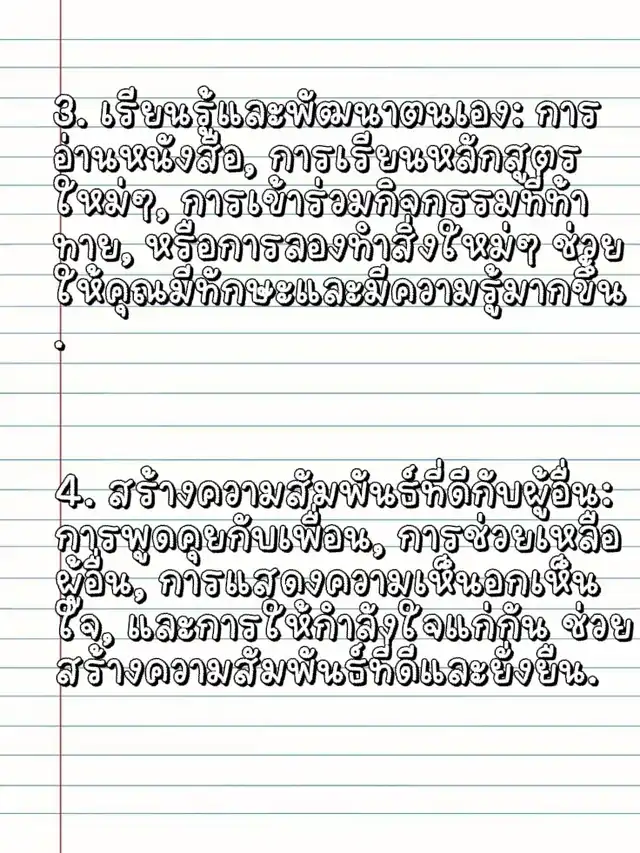 3. เรียนรู้และพัฒนาตนเอง: การ
อ่านหนังสือ, การเรียนหลักสูตร
ใหม่ๆ, การเข้าร่วมกิจกรรมที่ท้า
ทาย, หรือการลองทำสิ่งใหม่ๆ ช่วย
ให้คุณมีทักษะและมีความรู้มากขึ้น
.
4. สร้างความสัมพันธ์ที่ดีกับผู้อื่น:
การพูดคุยกับเพื่อน, การช่วยเหลือ
ผู้อื่น, การแสดงความเห็นอกเห็น
ใจ, และการให้กำลังใจแก่กัน ช่วย
สร้างความสัมพันธ์ที่ดีและยั่งยืน.